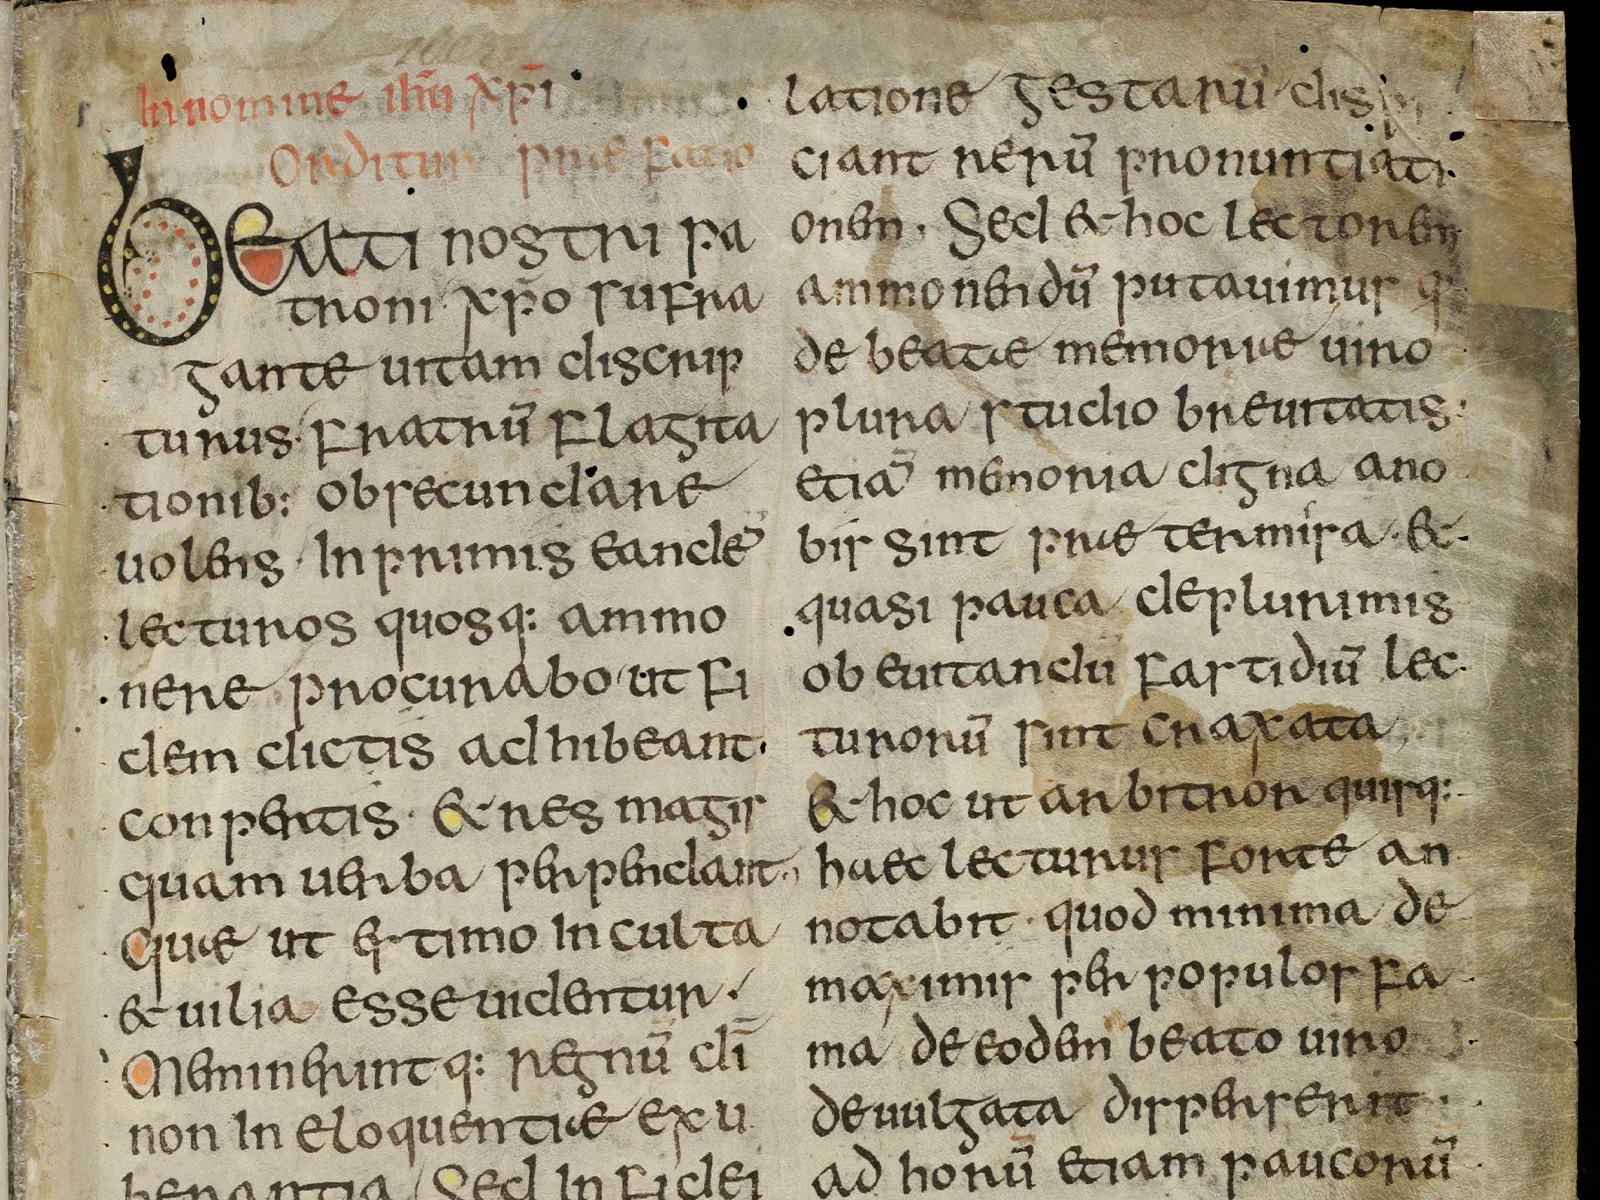 In nomine ihu xpi
Orditur praefatio
Beati nostri pa
troni xpo sufra
gante uitam discrip
turus fratrū flagita
tionib: obsecundare
uolens In primis eandē
lecturos quosq: ammo
nere procurabo ut fi
dem dictis adhibeant
conpertis & res magis
quam uerba perpendant
Quae ut estimo Inculta
& uilia esse uidentur
Meminerintq: regnū dī
non In eloquentiae exu
berantia Sed In fidei
latione gestarū disp
ciant rerū pronuntiati
onem. Sed & hoc lectorem
ammonendū putauimus q
de beatae memoriae uiro
plura studio breuitatis
etiā memoria digna ano
bis sint praetermisa &
quasi pauca deplurimis
ob euitandū fastidiū lec
turorū sint craxata
& hoc ut arbitror quisq:
haec lecturus forte an
notabit quod minima de
maximis per populos fa
ma de eodem beato uiro
deuulgata disperserit
ad horū etiam paucorū